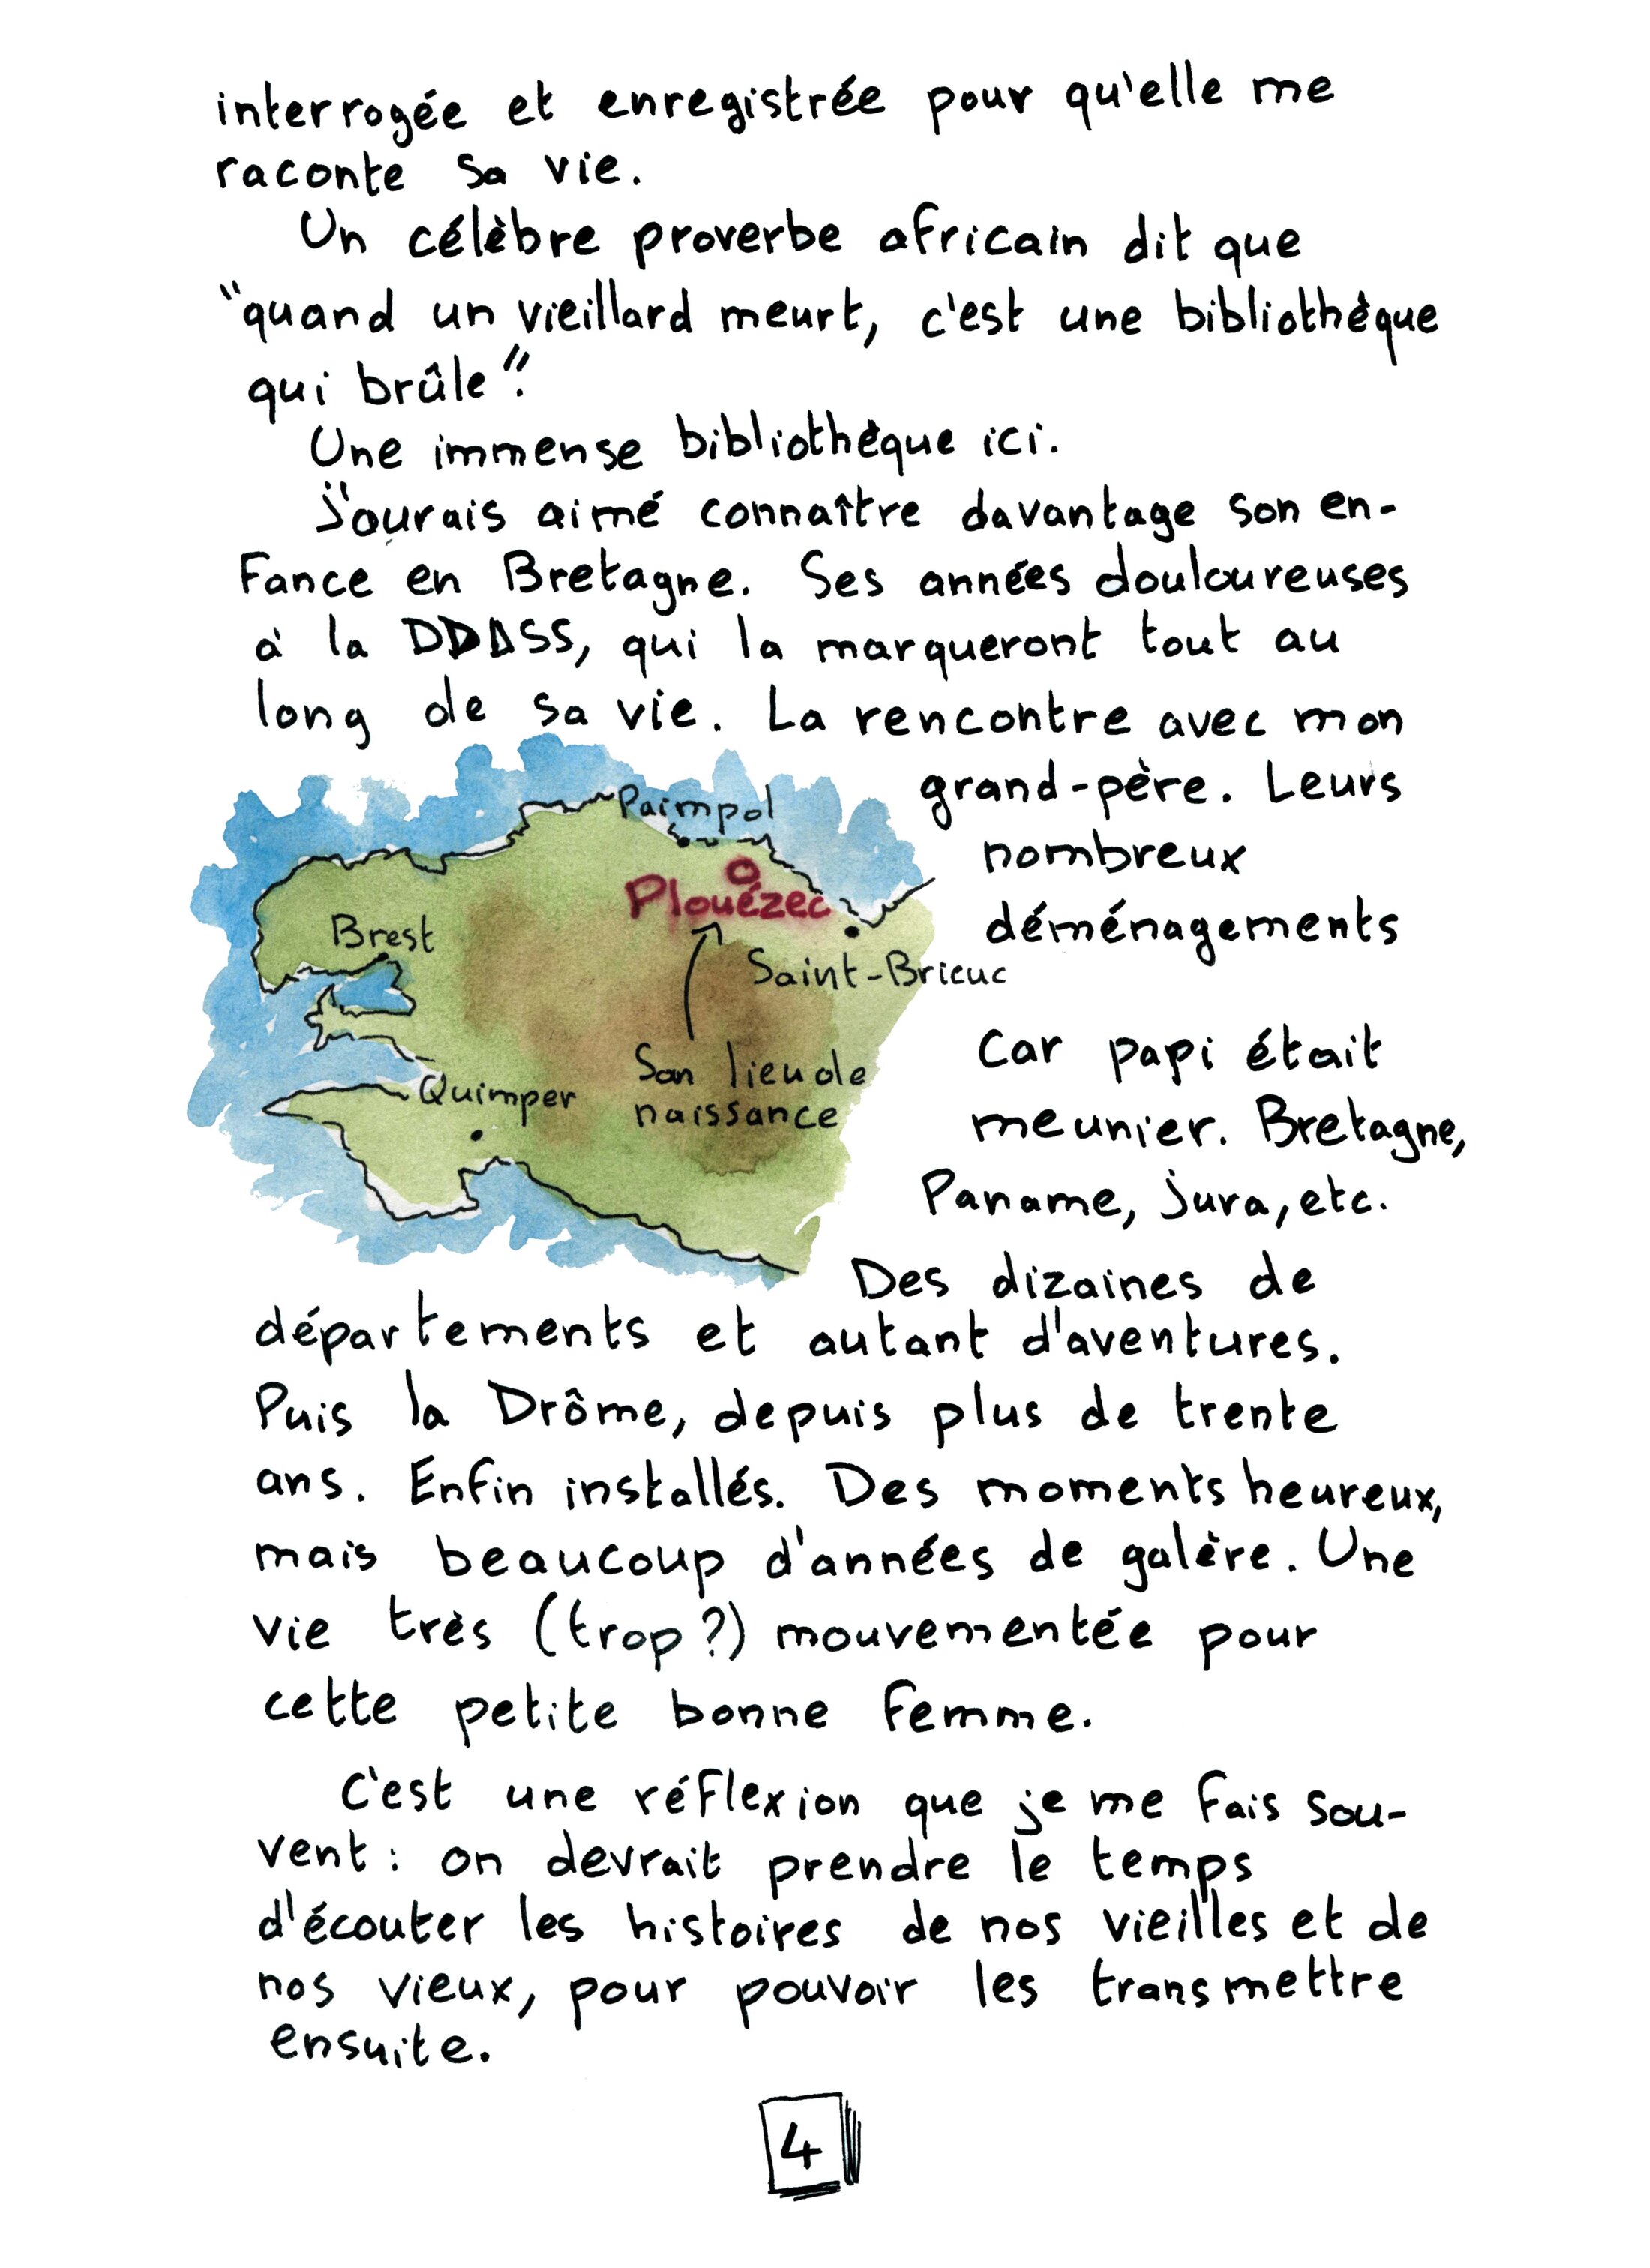 interrogée et enregistrée pour qu'elle me
raconte sa vie.
Un célèbre proverbe africain dit que
"quand un vieillard meurt, c'est une bibliothèque
qui brûle".
Une immense bibliothèque ici.
J'aurais aimé connaître davantage son en-
fance en Bretagne. Ses années douloureuses
à la DDASS, qui la marqueront tout au
long de sa vie. La rencontre avec mon
grand-père. Leurs
nombreux
déménagements
Car papi était
meunier. Bretagne,
Paname, Jura, etc.
Des dizaines de
départements et autant d'aventures.
Puis la Drôme, depuis plus de trente
ans. Enfin installés. Des moments heureux,
mais beaucoup d'années de galère. Une
vie très (trop ?) mouvementée pour
cette petite bonne femme.
C'est une réflexion que je me fais sou-
vent : on devrait prendre le temps
d'écouter les histoires de nos vieilles et de
nos vieux, pour pouvoir les transmettre
ensuite.
Paimpol
Plouézec
Brest
Saint-Brieuc
Son lieu de
naissance
Quimper
4